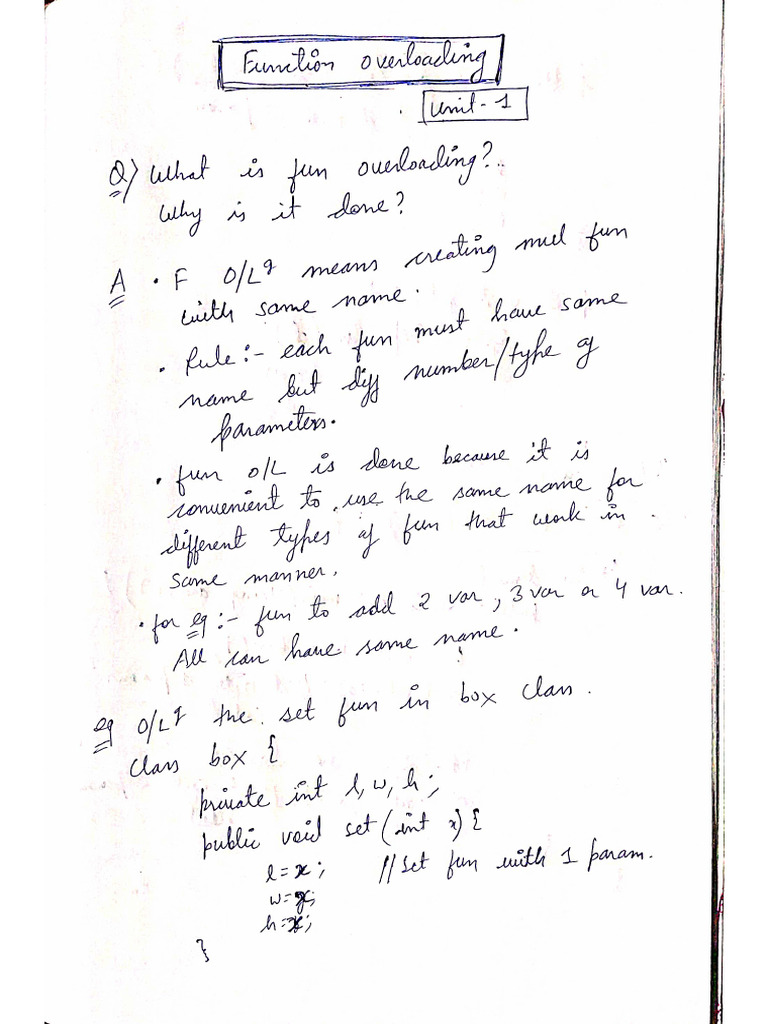 Function overloading
Unit-1
Q) What is fun overloading?
Why is it done?
A • F O/Lg means creating mul fun
with same name.
• Rule:- each fun must have same
name but diff number/type of
parameters.
• fun O/L is done because it is
convenient to use the same name for
different types of fun that work in
same manner.
• for eg:- fun to add 2 var, 3 var or 4 var.
All can have same name.
eg O/Lg the set fun in box class.
class box {
private int l, w, h;
public void set(int x){
l=x; //Set fun with 1 param.
w=x;
h=x;
}